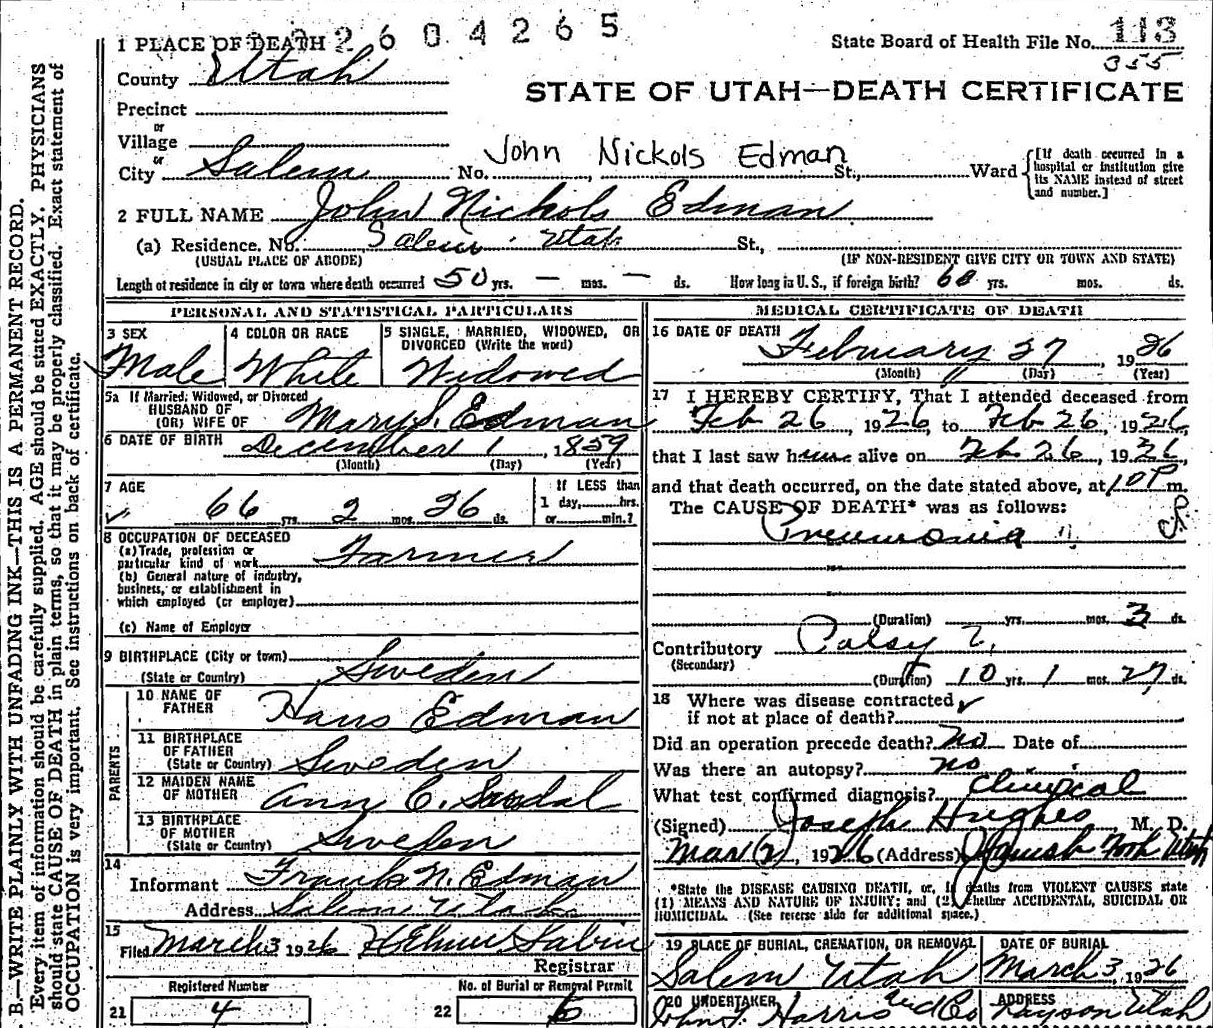 2604265
1 PLACE OF DEATH
State Board of Health File No. 113
355
County Utah
STATE OF UTAH—DEATH CERTIFICATE
Precinct
or
Village
or
City Salem No. John Nickols Edman St., Ward [If death occurred in a hospital or institution give its NAME instead of street and number.]
2 FULL NAME John Nickols Edman
(a) Residence. No. Salem Utah St.,
(USUAL PLACE OF ABODE) (IF NON-RESIDENT GIVE CITY OR TOWN AND STATE)
Length of residence in city or town where death occurred 50 yrs. — mos. — ds. How long in U. S., if foreign birth? 60 yrs. mos. ds.
PERSONAL AND STATISTICAL PARTICULARS
3 SEX
Male
4 COLOR OR RACE
White
5 SINGLE, MARRIED, WIDOWED, OR
DIVORCED (Write the word)
Widowed
5a If Married, Widowed, or Divorced
HUSBAND OF
(OR) WIFE OF Mary S. Edman
6 DATE OF BIRTH December 1, 1859
(Month) (Day) (Year)
7 AGE
66 yrs. 2 mos. 26 ds.
If LESS than
1 day, hrs.
or min.?
8 OCCUPATION OF DECEASED
(a) Trade, profession or
particular kind of work Farmer
(b) General nature of industry,
business, or establishment in
which employed (or employer)
(c) Name of Employer
9 BIRTHPLACE (City or town)
(State or Country) Sweden
PARENTS
10 NAME OF
FATHER Hans Edman
11 BIRTHPLACE
OF FATHER
(State or Country) Sweden
12 MAIDEN NAME
OF MOTHER Ann C.
13 BIRTHPLACE
OF MOTHER
(State or Country) Sweden
14
Informant Frank N. Edman
Address Salem Utah
15
Filed March 3 1926 H Elmer Sabin
Registrar
Registered Number
21 4
No. of Burial or Removal Permit
22 6
MEDICAL CERTIFICATE OF DEATH
16 DATE OF DEATH
February 27, 1926
(Month) (Day) (Year)
17 I HEREBY CERTIFY, That I attended deceased from
Feb 26, 1926, to Feb 26, 1926,
that I last saw him alive on Feb 26, 1926,
and that death occurred, on the date stated above, at 10 P m.
The CAUSE OF DEATH* was as follows:
Pneumonia
(Duration) yrs. mos. 3 ds.
Contributory Palsy
(Secondary)
(Duration) 10 yrs. 1 mos. 27 ds.
18 Where was disease contracted
if not at place of death?
Did an operation precede death? No Date of
Was there an autopsy? no
What test confirmed diagnosis? Clinical
(Signed) Joseph Hughes M. D.
Mar 2, 1926 (Address) Spanish Fork Utah
*State the DISEASE CAUSING DEATH, or, if deaths from VIOLENT CAUSES state
(1) MEANS AND NATURE OF INJURY; and (2) whether ACCIDENTAL, SUICIDAL OR
HOMICIDAL. (See reverse side for additional space.)
19 PLACE OF BURIAL, CREMATION, OR REMOVAL
Salem Utah
DATE OF BURIAL
March 3, 1926
20 UNDERTAKER
John T. Harris and Co
ADDRESS
Payson Utah
B.—WRITE PLAINLY WITH UNFADING INK—THIS IS A PERMANENT RECORD.
Every item of information should be carefully supplied. AGE should be stated EXACTLY. PHYSICIANS
should state CAUSE OF DEATH in plain terms, so that it may be properly classified. Exact statement of
OCCUPATION is very important. See instructions on back of certificate.